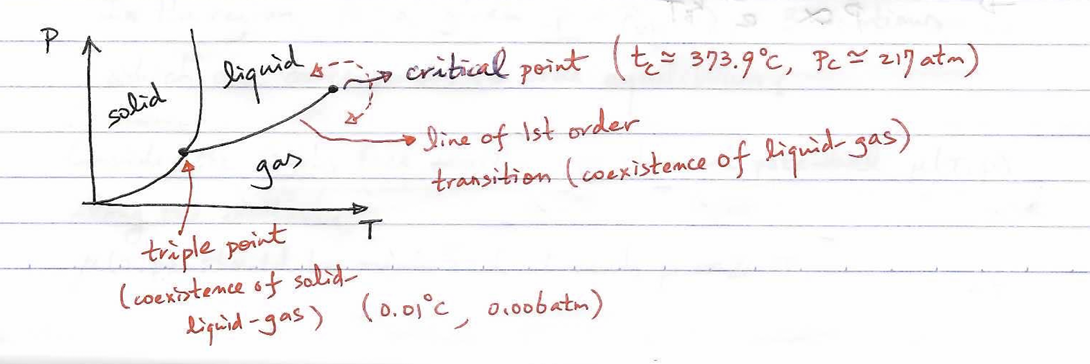 P
solid
liquid
critical point (tc ≃ 373.9°C, Pc ≃ 217 atm)
line of 1st order
transition (coexistence of liquid-gas)
gas
T
triple point
(coexistence of solid-
liquid-gas) (0.01°C, 0.006 atm)